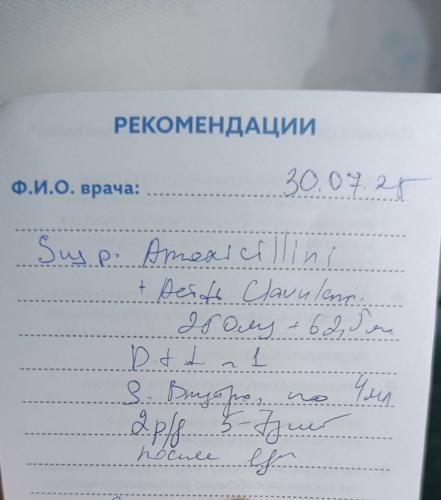 РЕКОМЕНДАЦИИ
Ф.И.О. врача: 30.07.25
Susp. Amoxicillini
+ Acidi Clavulan.
250мг + 62,5мг
D.t.d. N 1
S. Внутрь, по 4мл
2р/д 5-7дней
после еды